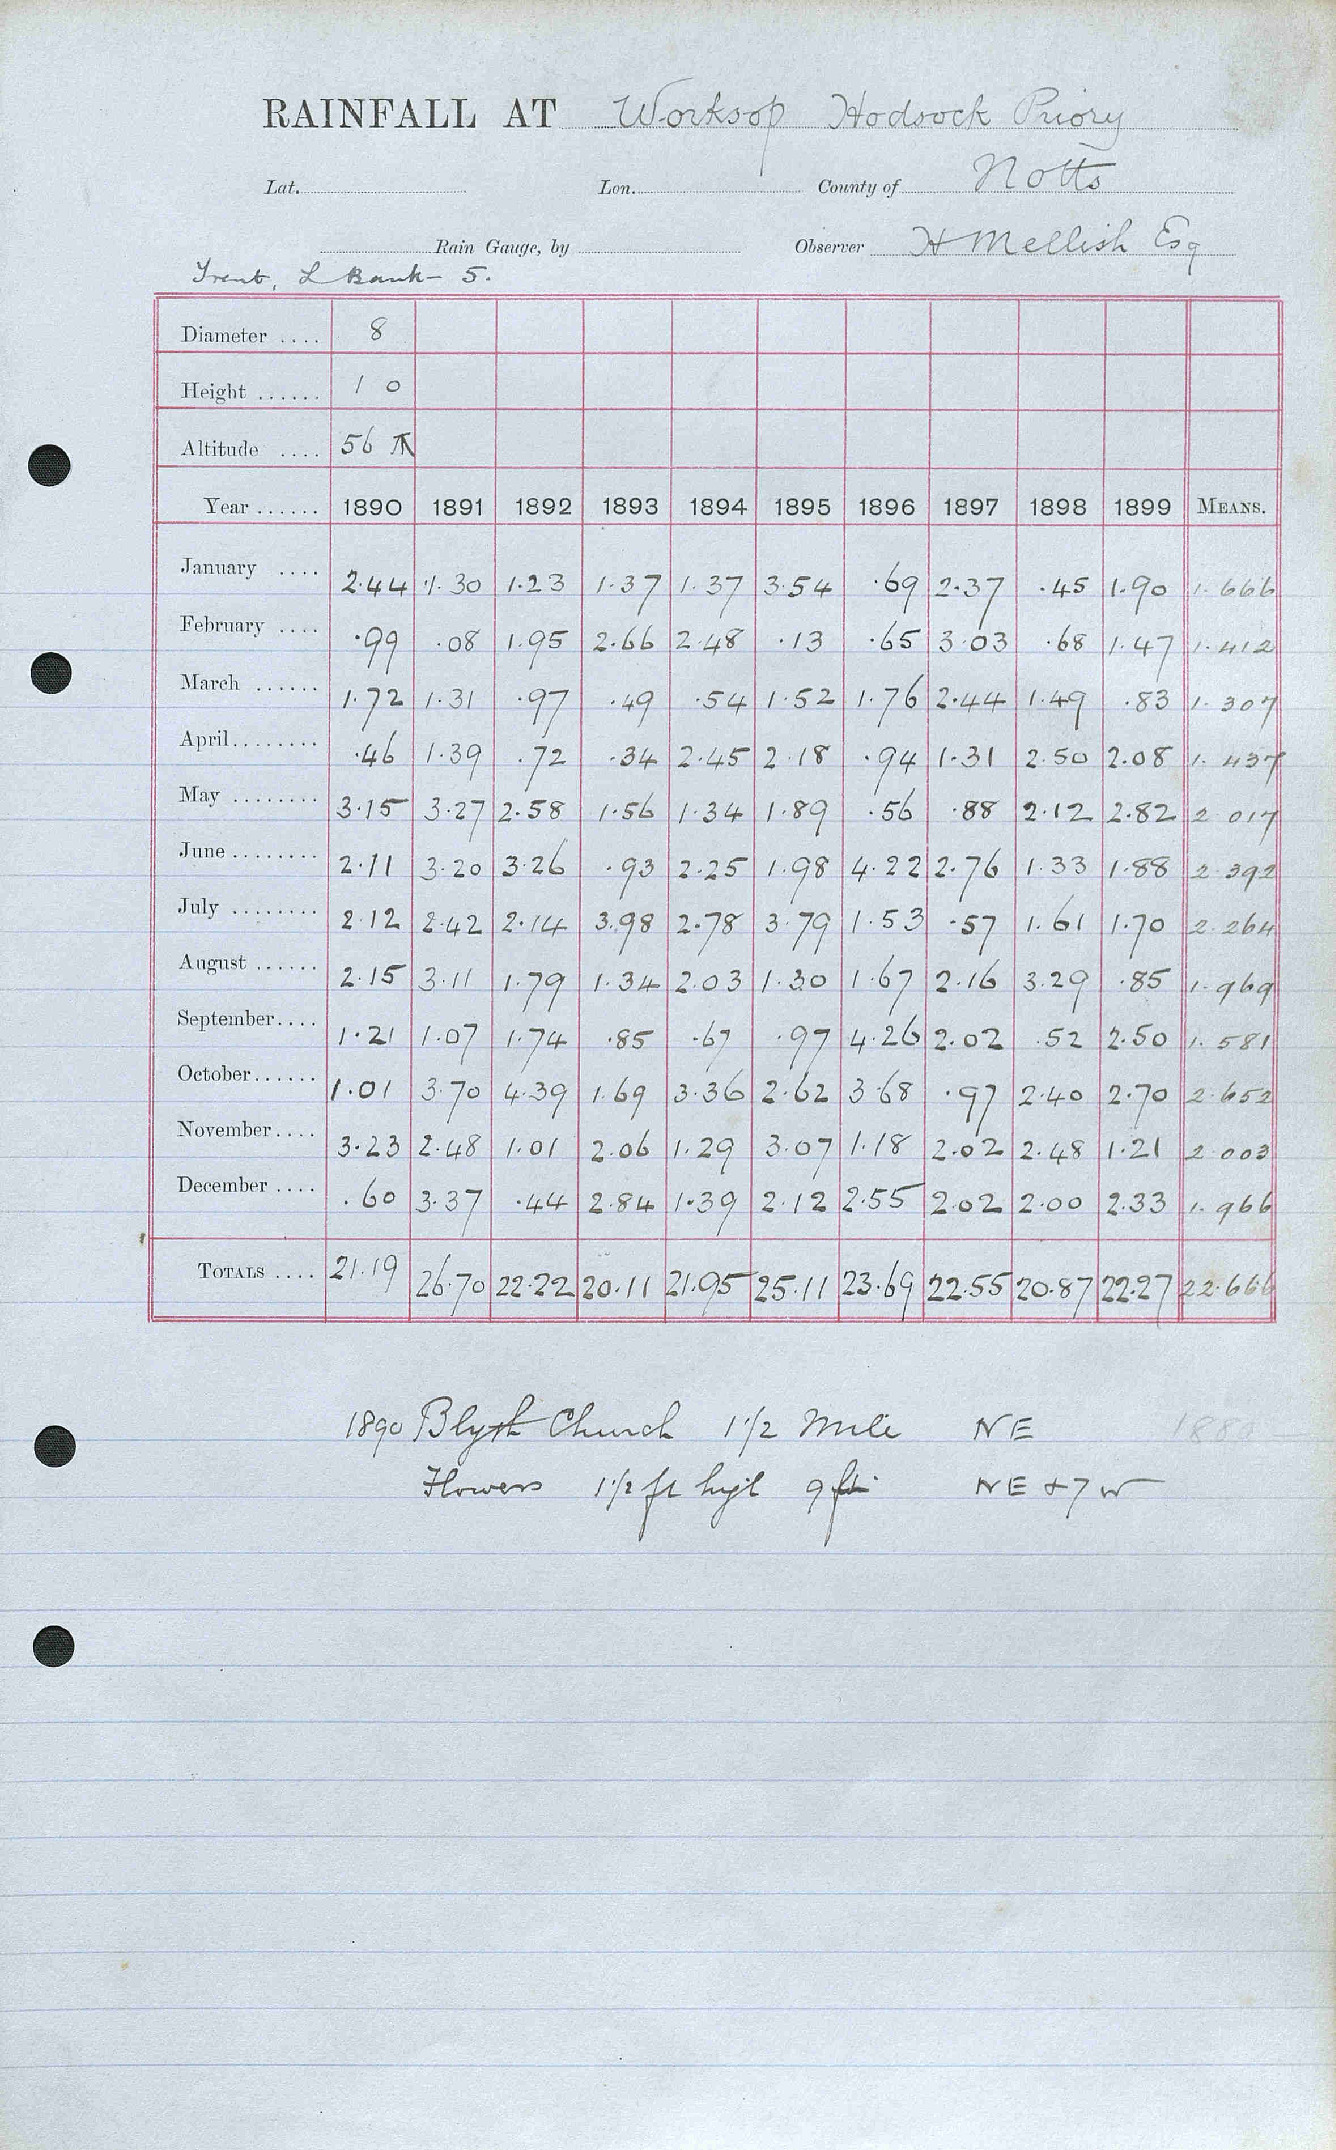 RAINFALL AT Worksop Hodsock Priory
Lat. Lon. County of Notts
Rain Gauge, by Observer H Mellish Esq
Trent, L Bank - 5.
Diameter .... 8
Height ...... 1 0
Altitude .... 56
Year ...... 1890 1891 1892 1893 1894 1895 1896 1897 1898 1899 MEANS.
January .... 2.44 1.30 1.23 1.37 1.37 3.54 .69 2.37 .45 1.90 1.666
February .... .99 .08 1.95 2.66 2.48 .13 .65 3.03 .68 1.47 1.412
March ...... 1.72 1.31 .97 .49 .54 1.52 1.76 2.44 1.49 .83 1.307
April........ .46 1.39 .72 .34 2.45 2.18 .94 1.31 2.50 2.08 1.437
May ........ 3.15 3.27 2.58 1.56 1.34 1.89 .56 .88 2.12 2.82 2.017
June ........ 2.11 3.20 3.26 .93 2.25 1.98 4.22 2.76 1.33 1.88 2.392
July ........ 2.12 2.42 2.14 3.98 2.78 3.79 1.53 .57 1.61 1.70 2.264
August ...... 2.15 3.11 1.79 1.34 2.03 1.30 1.67 2.16 3.29 .85 1.969
September.... 1.21 1.07 1.74 .85 .67 .97 4.26 2.02 .52 2.50 1.581
October...... 1.01 3.70 4.39 1.69 3.36 2.62 3.68 .97 2.40 2.70 2.652
November.... 3.23 2.48 1.01 2.06 1.29 3.07 1.18 2.02 2.48 1.21 2.003
December .... .60 3.37 .44 2.84 1.39 2.12 2.55 2.02 2.00 2.33 1.966
TOTALS .... 21.19 26.70 22.22 20.11 21.95 25.11 23.69 22.55 20.87 22.27 22.666
1890 Blyth Church 1 1/2 Mile NE
Flowers 1 1/2 ft high 9 ft NE + 7 W